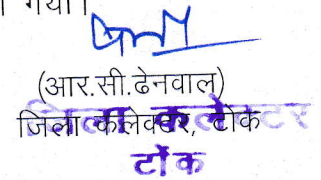 गया।
(आर.सी.ढेनवाल)
जिला कलेक्टर, टोंक
जिला कलेक्टर
टोंक